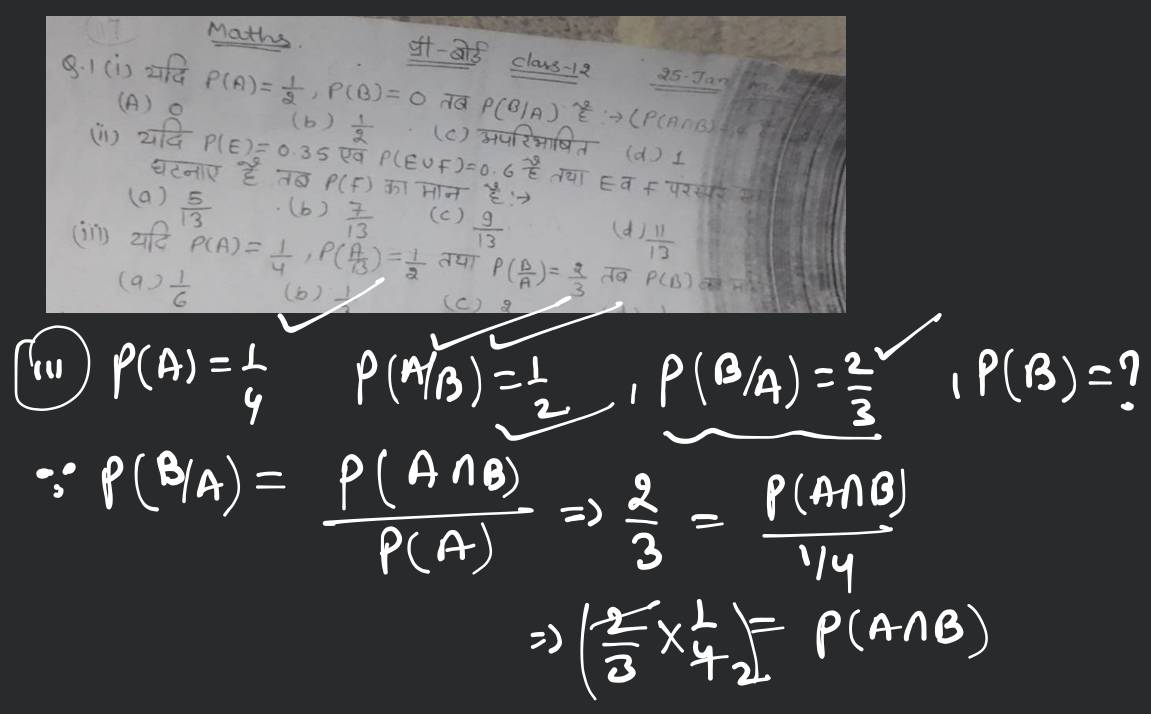 Maths. प्री-बोर्ड class-12 25-Jan
Q.1 (i) यदि P(A)= 1/2 , P(B)= 0 तब P(B/A) है :→ (P(A∩B)=
(A) 0 (b) 1/2 (c) अपरिभाषित (d) 1
(ii) यदि P(E)= 0.35 एवं P(EUF)=0.6 है तथा E व F परस्पर
घटनाए है तब P(F) का मान है :→
(a) 5/13 (b) 7/13 (c) 9/13 (d) 11/13
(iii) यदि P(A)= 1/4 , P(A/B)= 1/2 तथा P(B/A)= 2/3 तब P(B) का
(a) 1/6 (b) (c) 2
(iii) P(A) = 1/4 P(A/B) = 1/2 , P(B/A) = 2/3 , P(B) = ?
∵ P(B/A) = P(A∩B)/P(A) => 2/3 = P(A∩B)/1/4
=> (2/3 × 1/4 2) = P(A∩B)